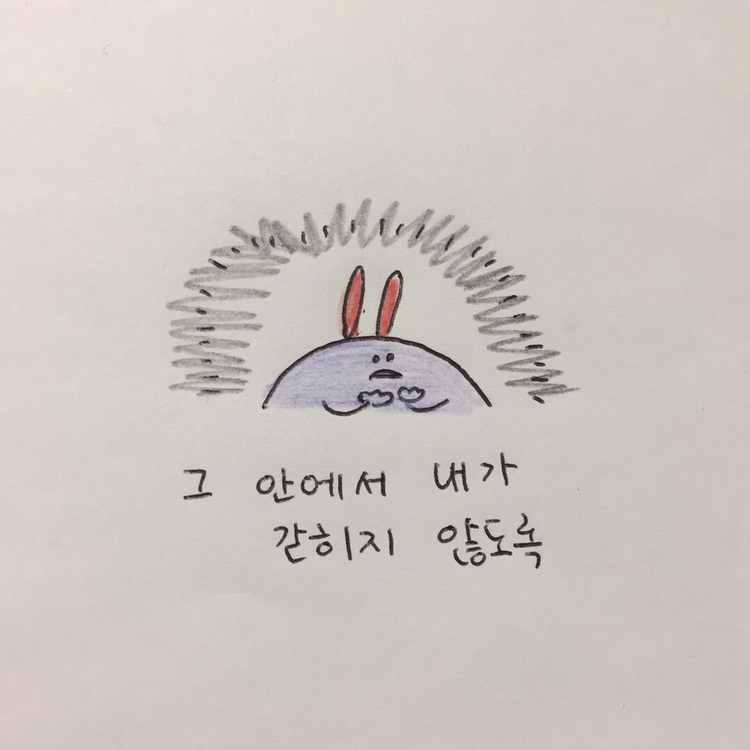 그 안에서 내가
갇히지 않도록